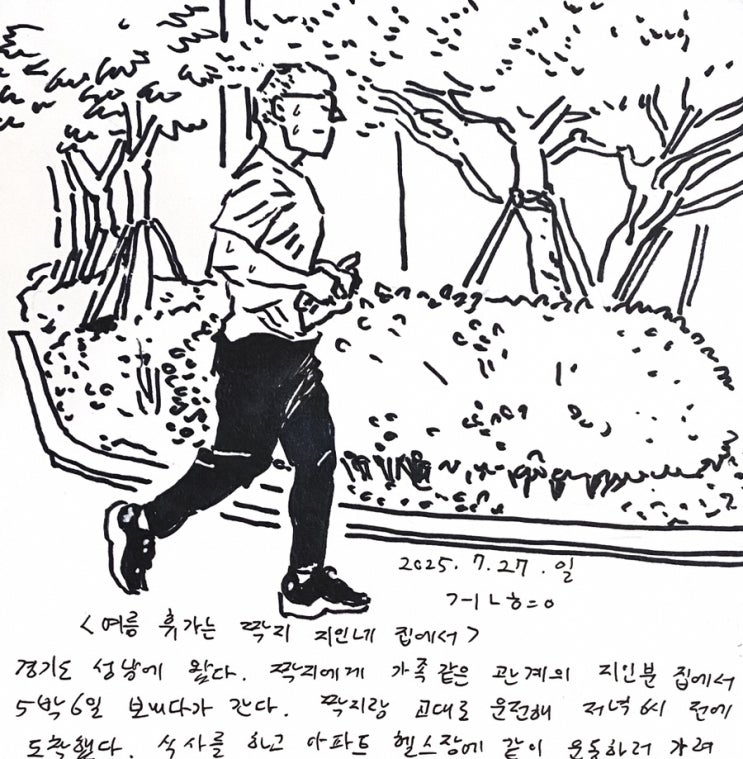 2025. 7. 27. 일
<여름 휴가는 짝지 지인네 집에서>
경기도 성남에 왔다. 짝지에게 가족같은 관계의 지인분 집에서
5박6일 보내다가 간다. 짝지랑 교대로 운전해 저녁 6시 전에
도착했다. 식사를 하고 아파트 헬스장에 같이 운동하러 가려